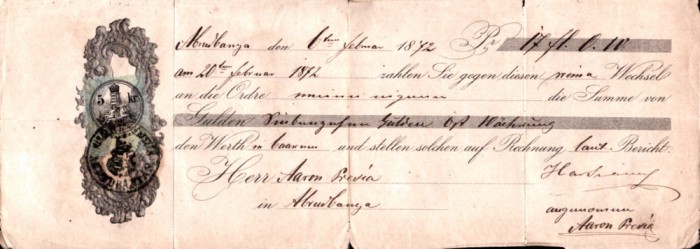 Abrudbanya den 6ten Februar 1872 Pr 17 fl. ö. W
am 20ten Februar 1872 zahlen Sie gegen diesen prima Wechsel
an die Ordre meiner eigenen die Summe von
Gulden Siebenzehn Gulden öst Währung
den Werth in baarem und stellen solchen auf Rechnung laut Bericht.
Herr Aaron Preşia
in Abrudbanya
angenommen
Aaron Preşia
5 kr